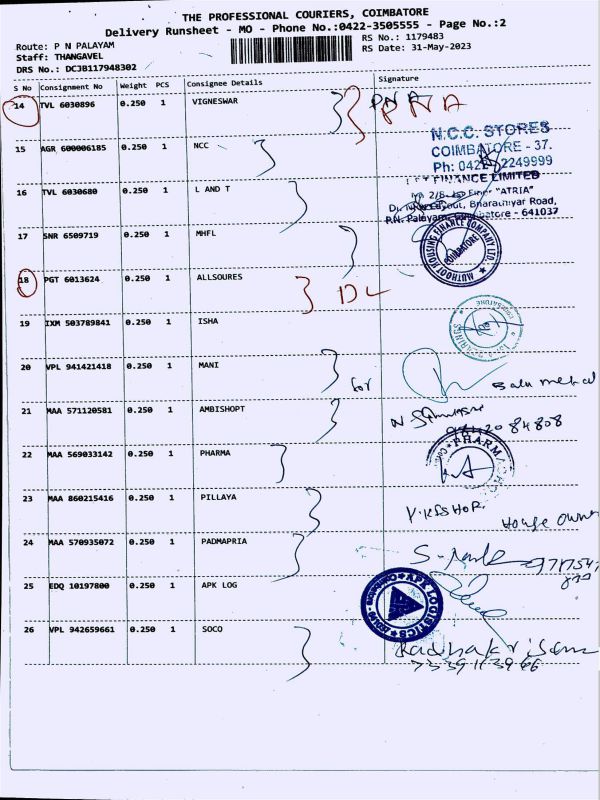 THE PROFESSIONAL COURIERS, COIMBATORE
Delivery Runsheet - MO - Phone No.:0422-3505555 - Page No.:2
Route: P N PALAYAM
Staff: THANGAVEL
DRS No.: DCJB117948302
RS No.: 1179483
RS Date: 31-May-2023
S No Consignment No Weight PCS Consignee Details Signature
14 TVL 6030896 0.250 1 VIGNESWAR PNA
15 AGR 600006185 0.250 1 NCC
N.C.C. STORES
COIMBATORE - 37.
Ph: 0422 2249999
16 TVL 6030680 0.250 1 L AND T
FINANCE LIMITED
"ATRIA"
Bharathiyar Road,
P.N. Palayam, Coimbatore - 641037
17 SNR 6509719 0.250 1 MHFL
MUTHOOT HOUSING FINANCE COMPANY LTD.
COIMBATORE
18 PGT 6013624 0.250 1 ALLSOURES DL
19 IXM 503789841 0.250 1 ISHA
20 VPL 941421418 0.250 1 MANI
for
21 MAA 571120581 0.250 1 AMBISHOPT
84808
22 MAA 569033142 0.250 1 PHARMA
PHARMA
23 MAA 860215416 0.250 1 PILLAYA
House owner
24 MAA 570935072 0.250 1 PADMAPRIA
25 EDQ 10197800 0.250 1 APK LOG
APK LOGISTICS
26 VPL 942659661 0.250 1 SOCO